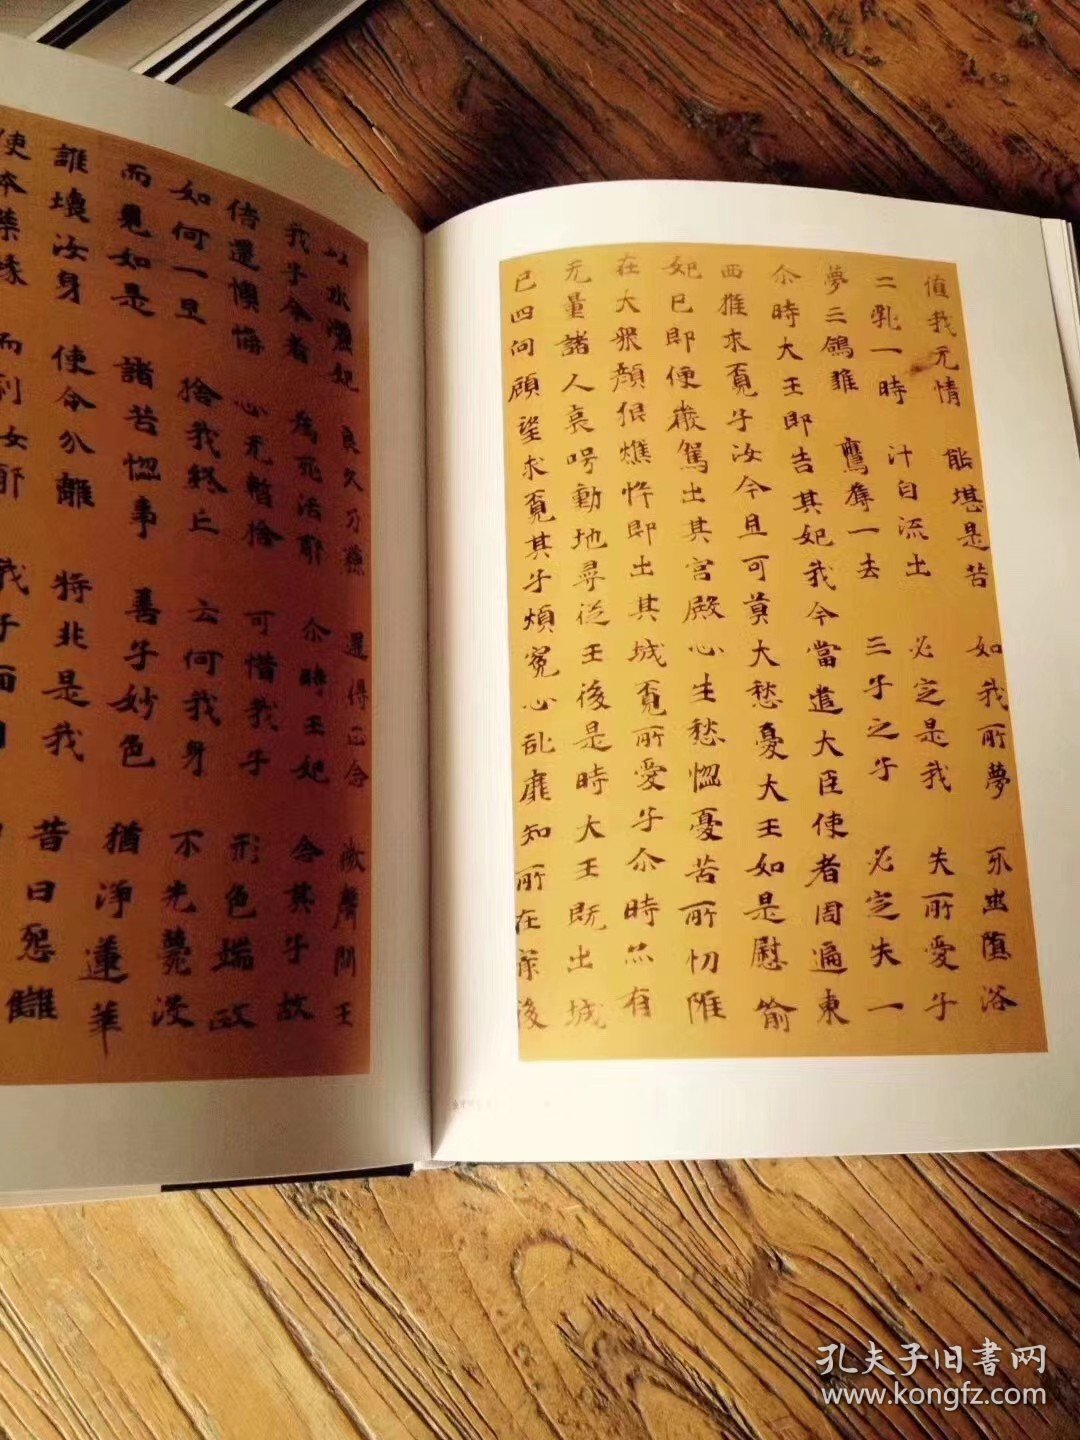 值我无情　能堪是苦　如我所夢　牙齒墮落
二乳一時　汁自流出　必定是我　失所愛子
夢三鴿雛　鷹奪一去　三子之子　必定失一
尒時大王即告其妃我今當遣大臣使者周遍東
西推求覓子汝今且可莫大愁憂大王如是慰喻
妃已即便嚴駕出其宮殿心生愁惱憂苦所切雖
在大衆顔貌憔悴即出其城覓所愛子尒時亦有
无量諸人哀号動地尋從王後是時大王既出城
已四向顧望求覓其子煩冤心乱靡知所在最後
以水灑妃　良久乃穌　還得正念　微聲問王
我子今者　為死活耶　尒時王妃　念其子故
倍還懊惱　心无暫捨　可惜我子　形色端政
如何一旦　捨我終亡　云何我身　不先薨沒
而見如是　諸苦惱事　善子妙色　猶淨蓮華
誰壞汝身　使令分離　將非是我　昔日怨讎
本業緣　而　汝耶　我子面目
孔夫子旧書网
www.kongfz.com